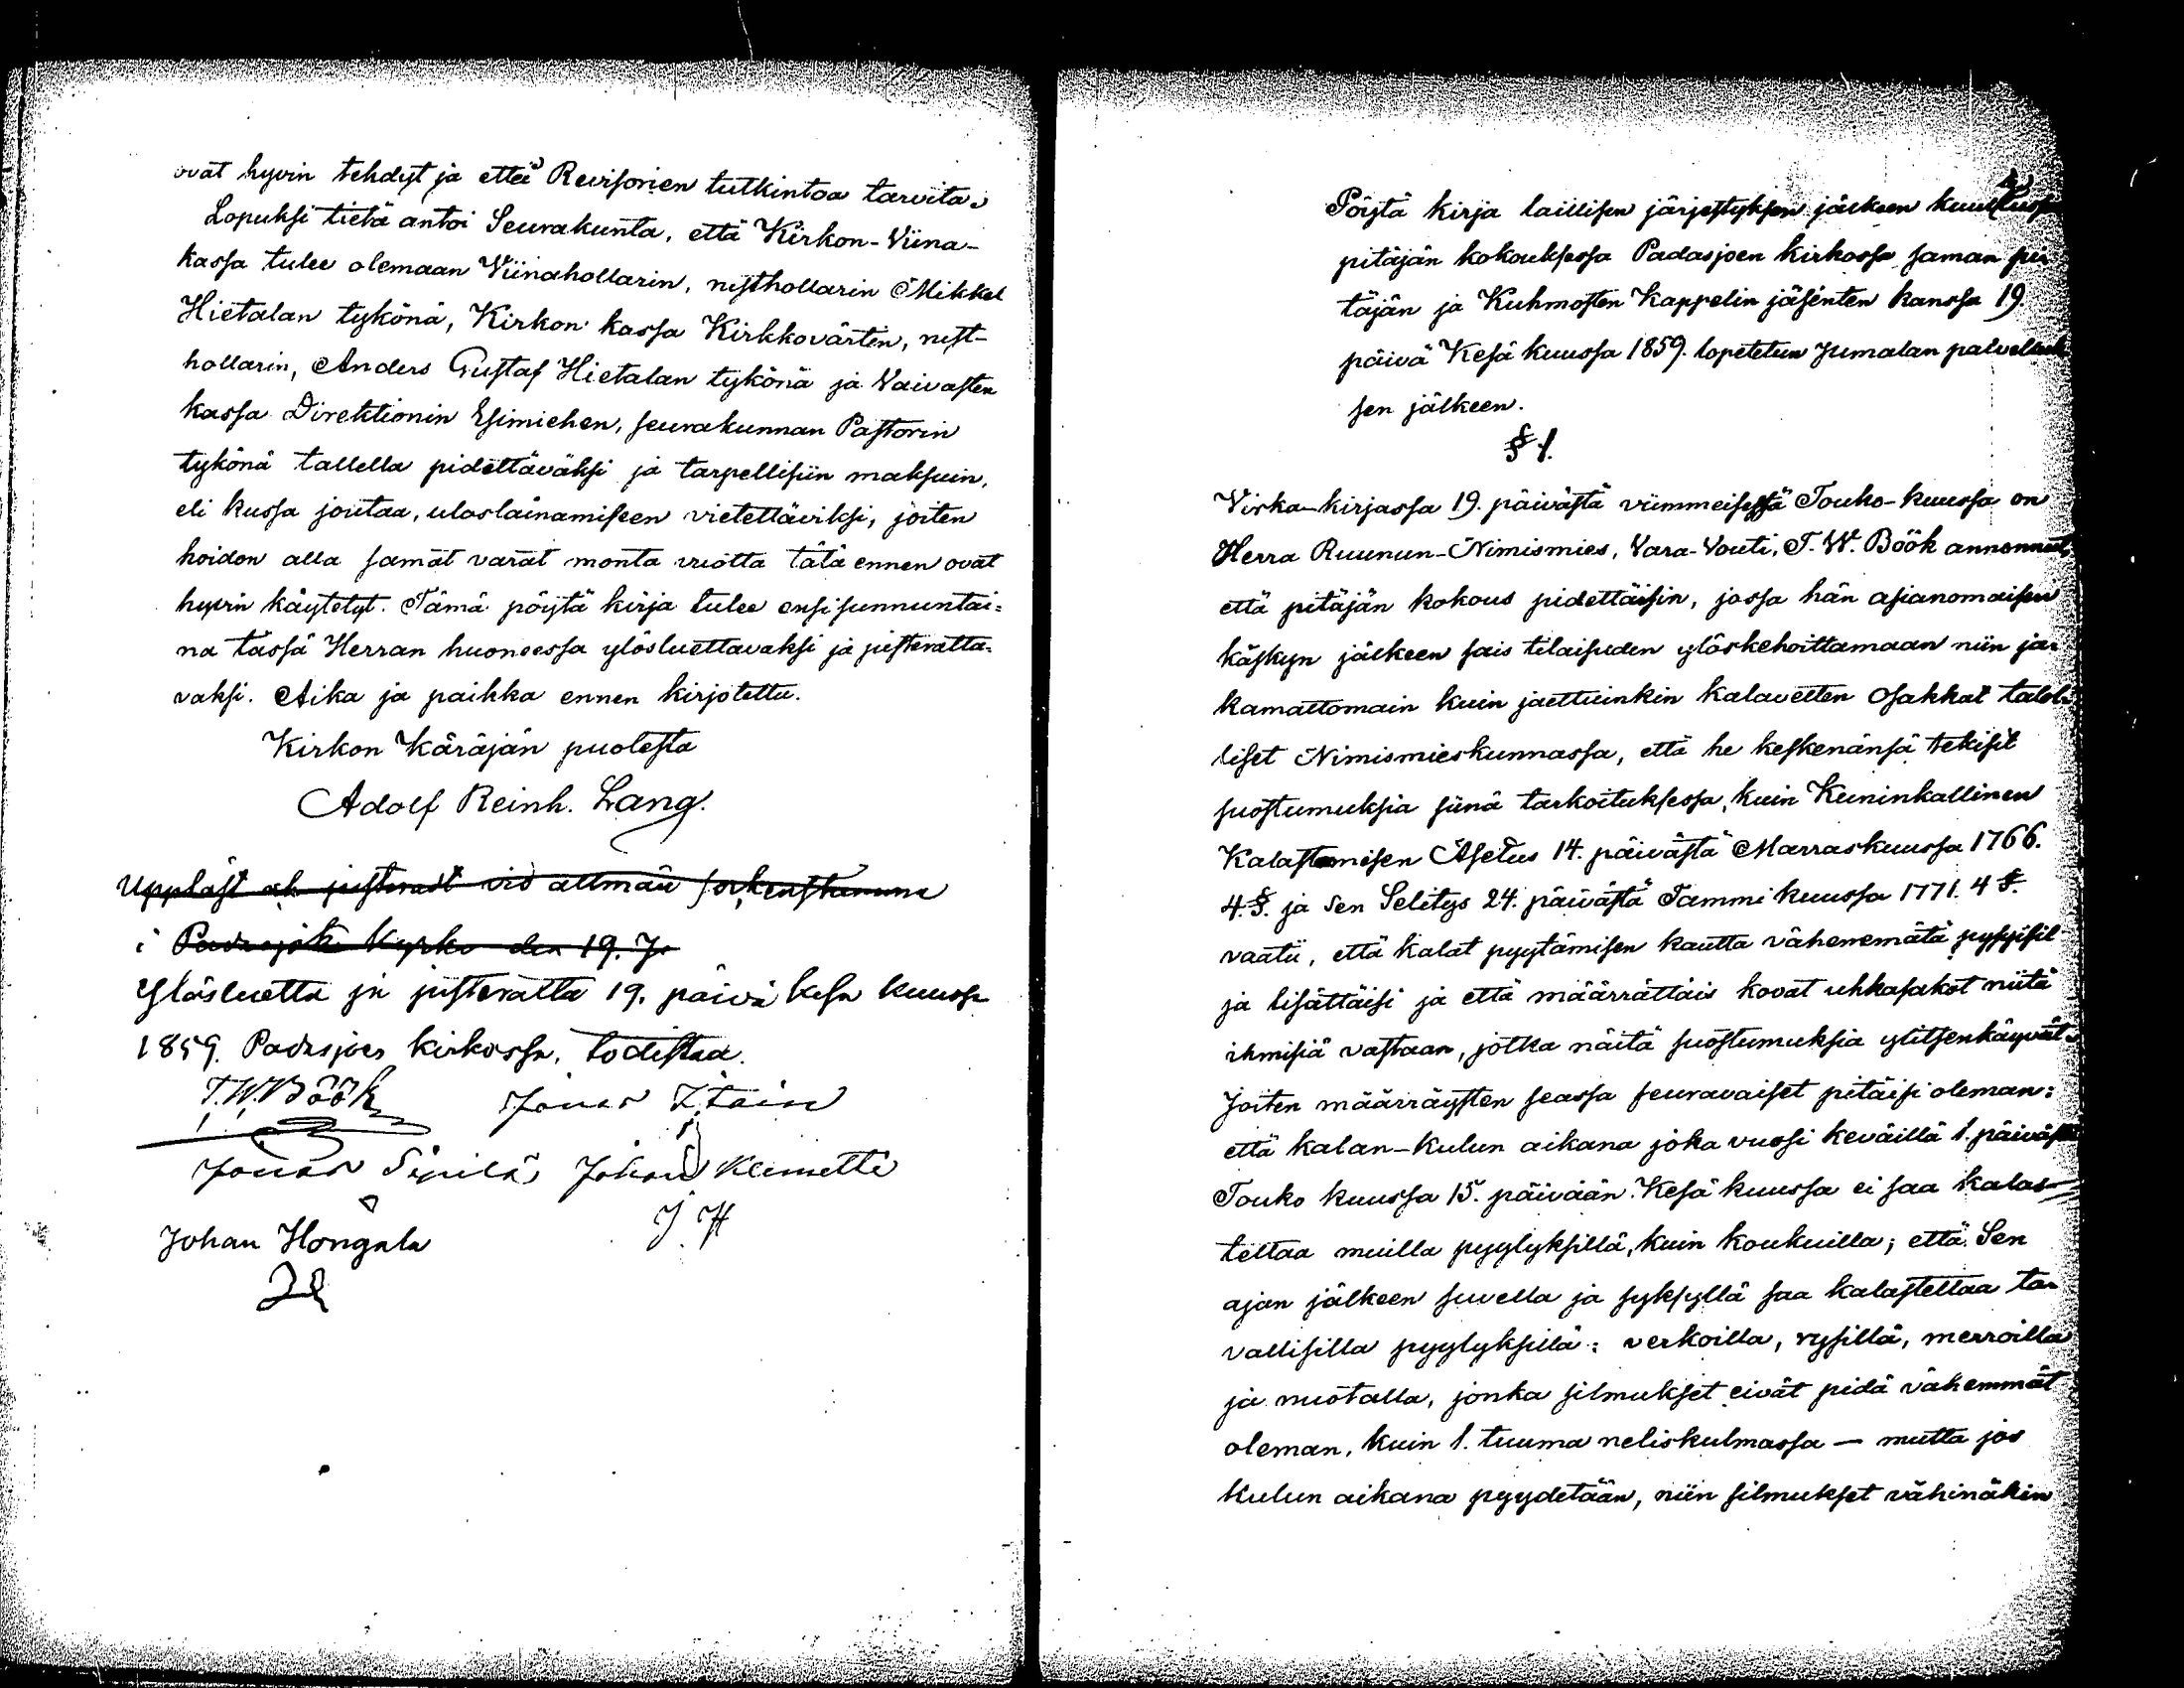 ovat hyvin tehdyt ja ettei Revisorien tutkintoa tarvita.
Lopuksi tietä antoi Seurakunta, että Kirkon-Viina-
kassa tulee olemaan Viinahollarin, nysthollarin Mikkel
Hietalan tykönä, Kirkon kassa Kirkkovärten, nyst-
hollarin, Anders Gustaf Hietalan tykönä ja Vaivasten
kassa Direktionin Esimiehen, seurakunnan Pastorin
tykönä tallella pidettäväksi ja tarpellisiin maksuin,
eli kussa joutaa, uloslainamiseen vietettäviksi, joiten
hoidon alla samat varat monta vuotta tätä ennen ovat
hyvin käytetyt. Tämä pöytä kirja tulee ensi sunnuntai=
na tässä Herran huoneessa ylösluettavaksi ja justeratta=
vaksi. Aika ja paikka ennen kirjotettu.
Kirkon Käräjän puolesta
Adolf Reinh. Lang.
Uppläst och justeradt vid allmän sockenstämma
i Padasjoki Kyrka den 19. Ju
Ylösluettu ja justerattu 19. päivä kesä kuussa
1859. Padasjoen kirkossa, todistaa.
T. W. Böök Jonas
Jonas Sipilä Johan Klemetti
J H
Johan Hongala
Pöytä kirja laillisen järjestyksen jälkeen kuulutussa
pitäjän kokouksessa Padasjoen kirkossa saman pi
täjän ja Kuhmosten Kappelin jäsenten kanssa 19
päivä Kesä kuussa 1859. lopetetun Jumalan palveluk
sen jälkeen.
§ 1.
Virka-kirjassa 19. päivästä viimmeisessä Touko-kuussa on
Herra Ruunun-Nimismies, Vara-Vouti, T. W. Böök annonnut,
että pitäjän kokous pidettäisin, jossa hän asianomaisen
käskyn jälkeen sais tilaisuden ylöskehoittamaan niin ja=
kamattomain kuin jaettuinkin kalavetten Osakkat talol=
liset Nimismieskunnassa, että he keskenänsä tekisit
suostumuksia siinä tarkoituksessa, kuin Kuninkallinen
Kalastamisen Asetus 14. päivästä Marraskuussa 1766.
4. §. ja sen Selitys 24. päivästä Tammi kuussa 1771. 4 §.
vaatii, että kalat pyytämisen kautta vähenemätä pysyisit
ja lisättäisi ja että määrrättäis kovat uhkasakot niitä
ihmisiä vastaan, jotka näitä suostumuksia ylitsenkäyvät.
Joiten määrräysten seassa seuravaiset pitäisi oleman:
että kalan-kulun aikana joka vuosi keväillä 1. päivästä
Touko kuussa 15. päivään Kesä kuussa ei saa kalas=
tettaa muilla pyytyksillä, kuin koukuilla; että Sen
ajan jälkeen suvella ja syksyllä saa kalastettaa ta=
vallisilla pyytyksillä: verkoilla, rysillä, merroilla
ja nuotalla, jonka silmukset eivät pidä vähemmät
oleman, kuin 1. tuuma neliskulmassa — mutta jos
kulun aikana pyydetään, niin silmukset vähinäkin